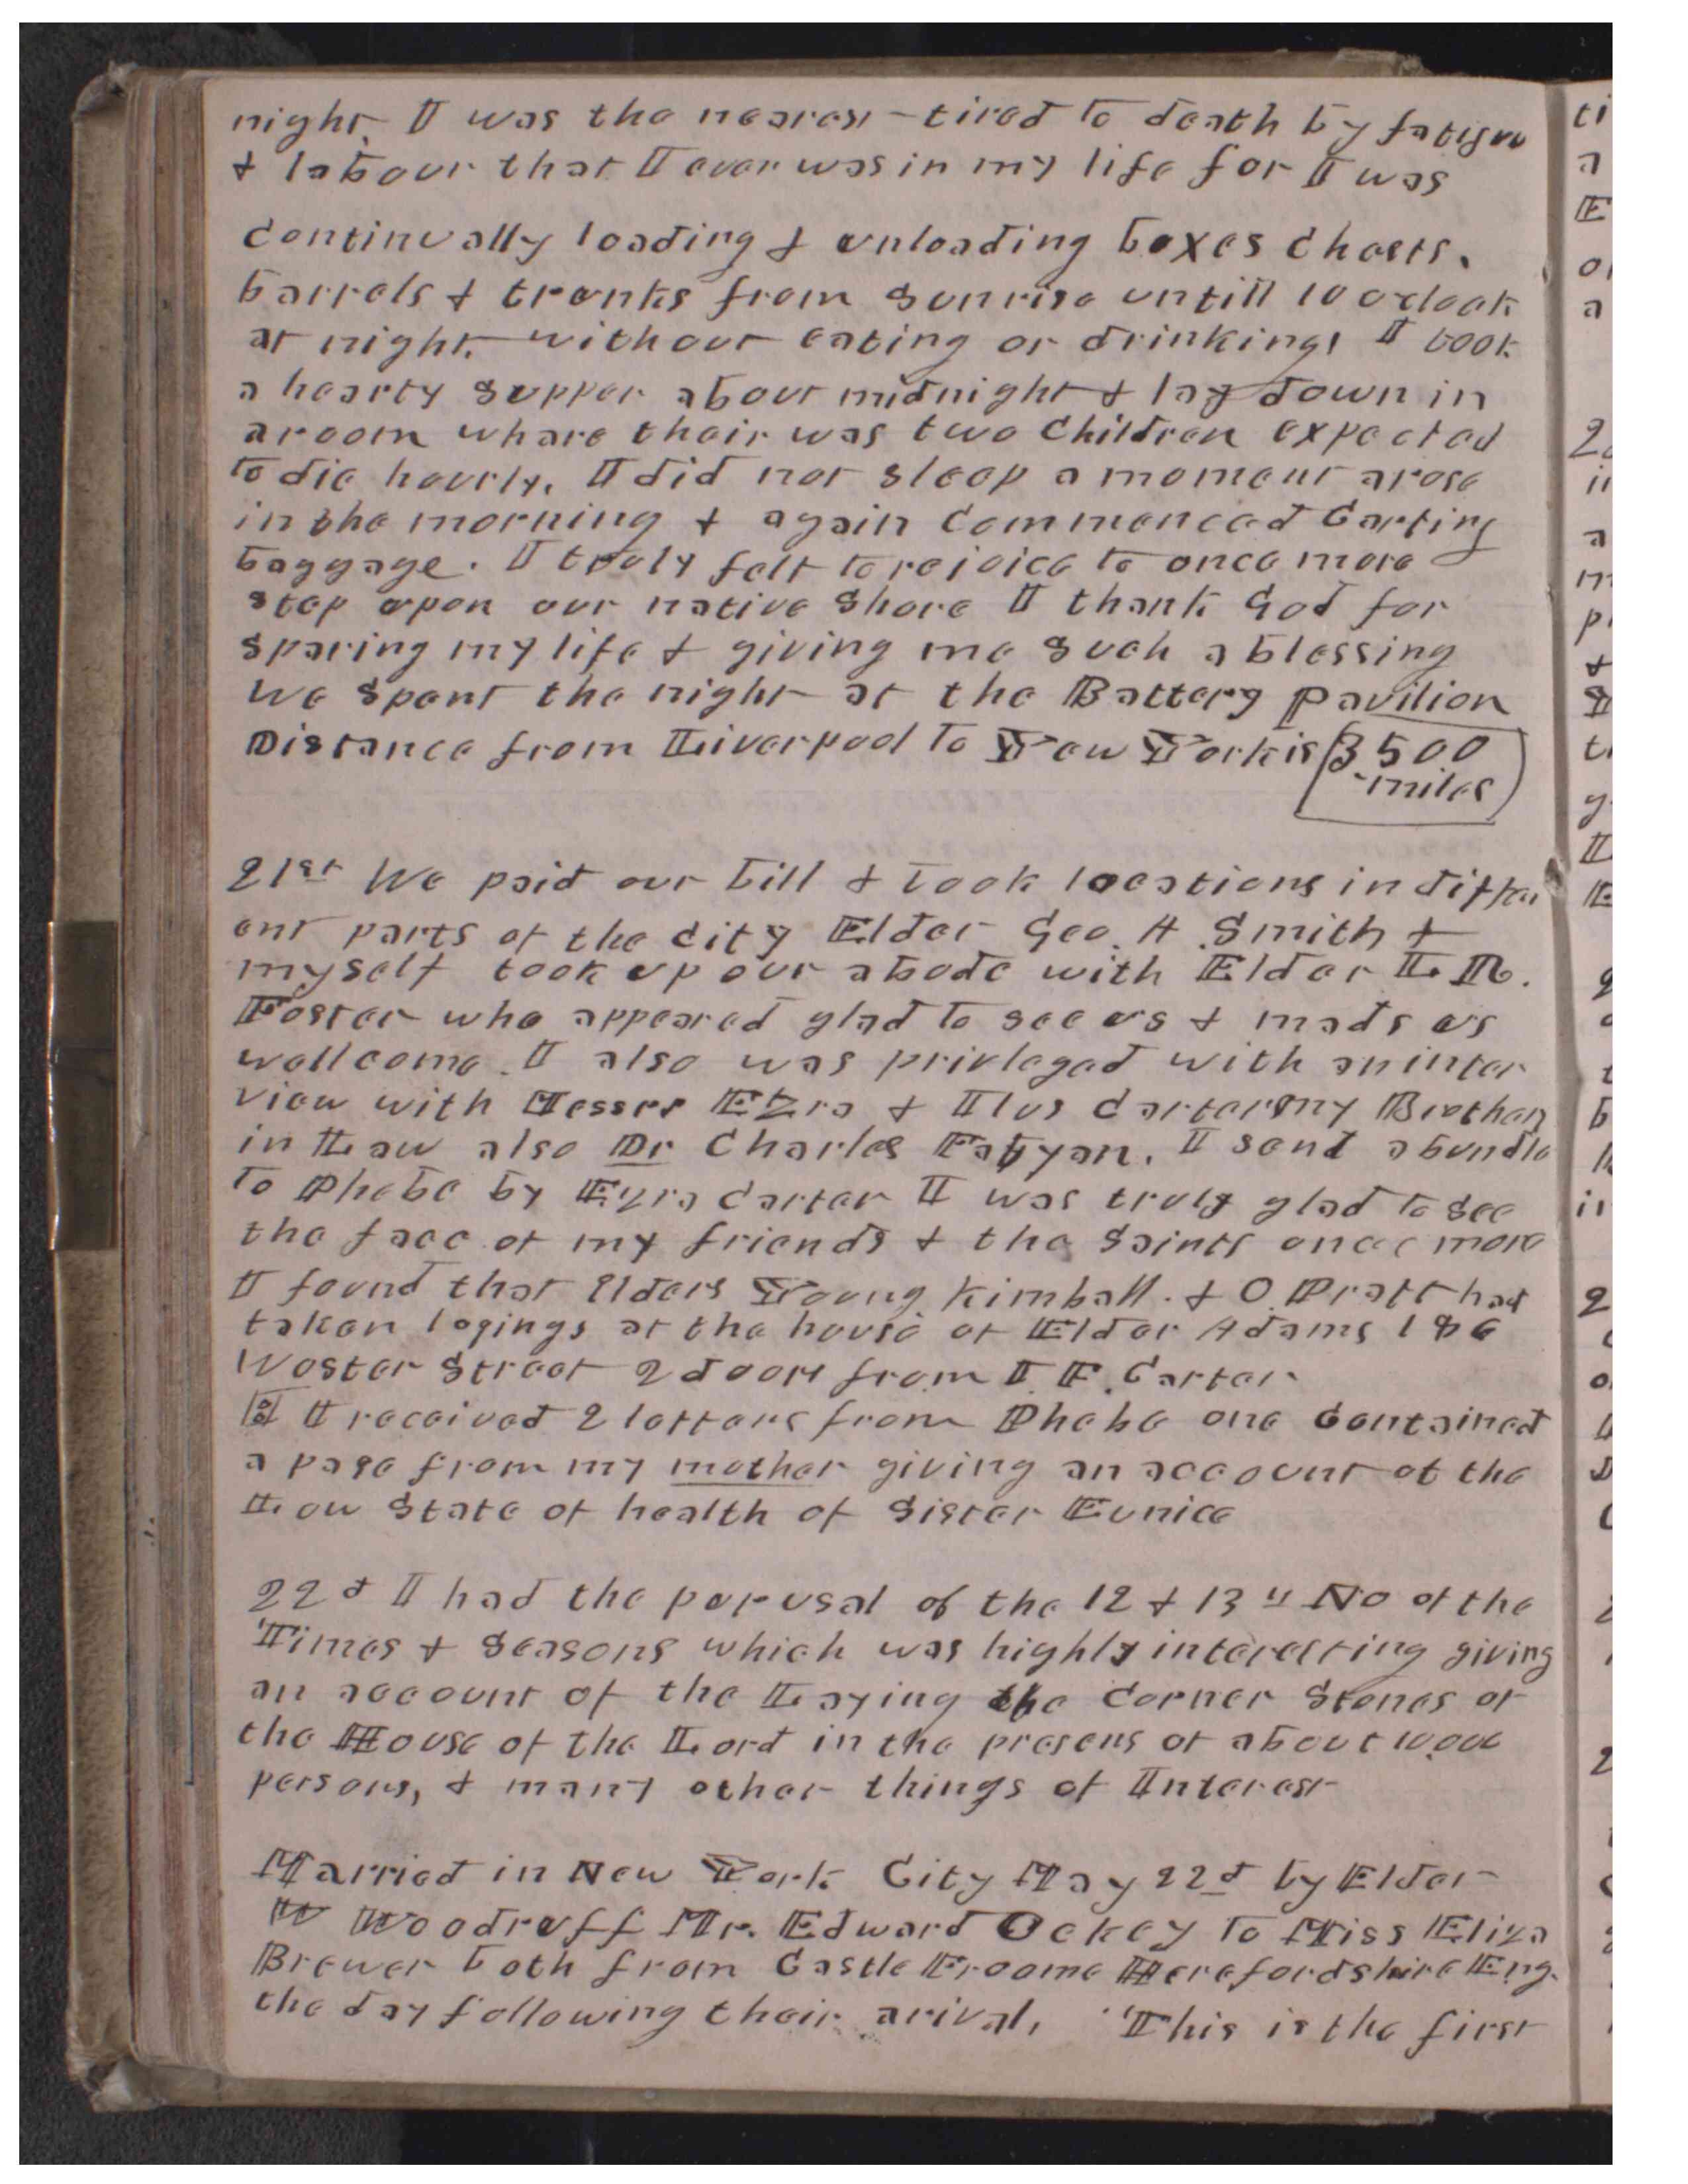 night. I was the nearest tired to death by fatigue
& labour that I ever was in my life for I was
continually loading & unloading boxes chests.
barrels & trunks from sunrise untill 10 oclock
at night. without eating or drinking! I took
a hearty supper about midnight & lay down in
a room whare their was two children expected
to die hourly. I did not sleep a moment arose
in the morning & again commenced carting
baggage. I truly felt to rejoice to once more
step upon our native shore I thank God for
sparing my life & giving me such a blessing
We spent the night at the Battery Pavilion
Distance from Liverpool to New York is 3500
miles
21st We paid our bill & took locations in differ
ent parts of the city Elder Geo. A. Smith &
myself took up our abode with Elder L. R.
Foster who appeared glad to see us & made us
wellcome. I also was privleged with an inter
view with Messrs Ezra & Ilus Carter my Brothers
in Law also Dr Charles Fabyan. I sent a bundle
to Phebe by Ezra Carter I was truly glad to see
the face of my friends & the Saints once more
I found that Elders Young Kimball. & O Pratt had
taken logings at the house of Elder Adams 186
Woster Street 2 doors from I. F. Carter
I received 2 letters from Phebe one contained
a page from my mother giving an account of the
Low State of health of Sister Eunice
22d I had the perusal of the 12 & 13 " No of the
Times & Seasons which was highly interesting giving
an account of the Laying the Corner Stones of
the House of the Lord in the presens of about 10,000
persons, & many other things of Interest
Married in New York City May 22d by Elder
W Woodruff Mr. Edward Ockey to Miss Eliza
Brewer both from Castle Froome Herefordshire Eng.
the day following their arival, This is the first